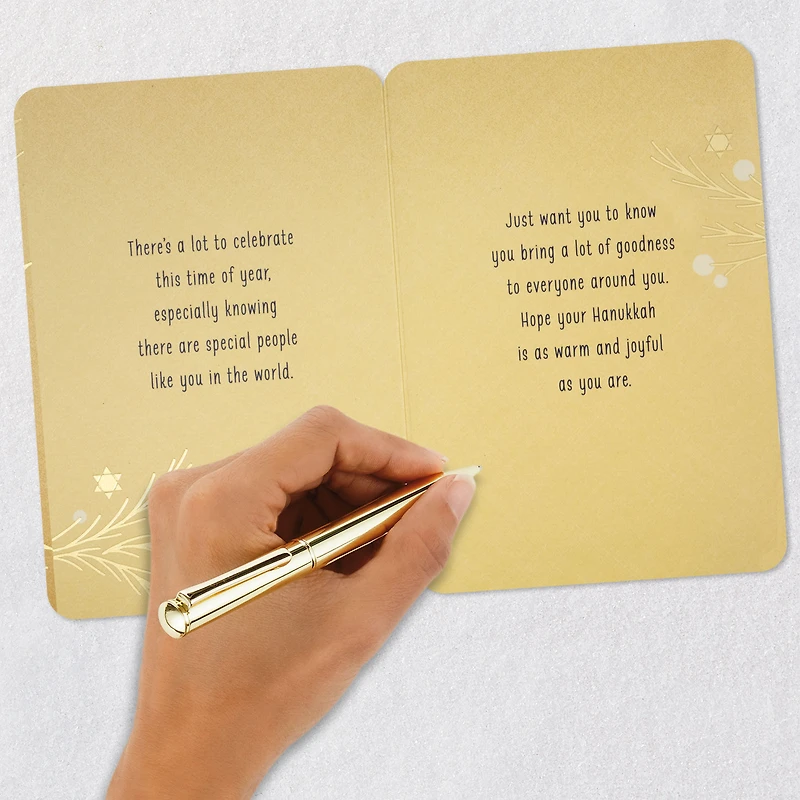 There's a lot to celebrate
this time of year,
especially knowing
there are special people
like you in the world.
Just want you to know
you bring a lot of goodness
to everyone around you.
Hope your Hanukkah
is as warm and joyful
as you are.